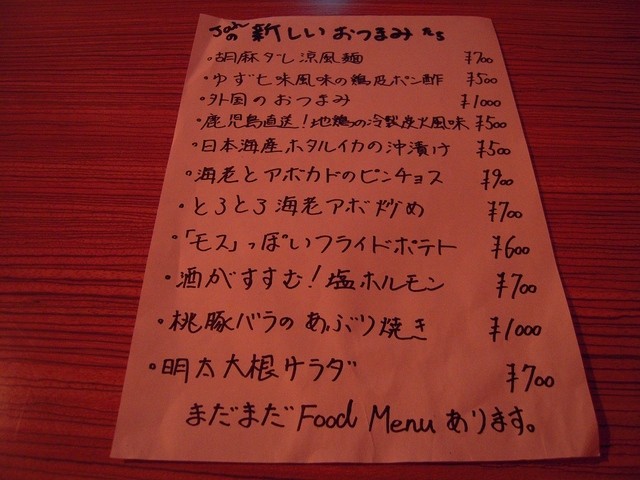 Johnの 新しいおつまみたち
・胡麻ダレ涼風麺 ¥700
・ゆず七味風味の鶏皮ポン酢 ¥500
・外国のおつまみ ¥1000
・鹿児島直送!地鶏の冷製炭火風味 ¥500
・日本海産ホタルイカの沖漬け ¥500
・海老とアボカドのピンチョス ¥900
・とろとろ海老アボ炒め ¥700
・「モス」っぽいフライドポテト ¥600
・酒がすすむ!塩ホルモン ¥700
・桃豚バラのあぶり焼き ¥1000
・明太大根サラダ ¥700
まだまだFood Menuあります。